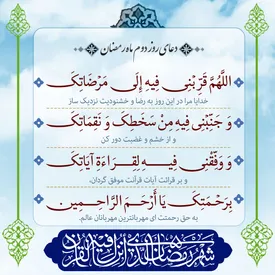 دعای روز دوم ماه رمضان
اللَّهُمَّ قَرِّبْنِی فِیهِ إِلَى مَرْضَاتِکَ
خدایا مرا در این روز به رضا و خشنودیت نزدیک ساز
وَ جَنِّبْنِی فِیهِ مِنْ سَخَطِکَ وَ نَقِمَاتِکَ
و از خشم و غضبت دور کن
وَ وَفِّقْنِی فِیهِ لِقِرَاءَةِ آیَاتِکَ
و بر قرائت آیات قرآنت موفق گردان.
بِرَحْمَتِکَ یَا أَرْحَمَ الرَّاحِمِینَ
به حق رحمتت ای مهربانترین مهربانان عالم.
شهر رمضان الذی انزل فیه القرآن